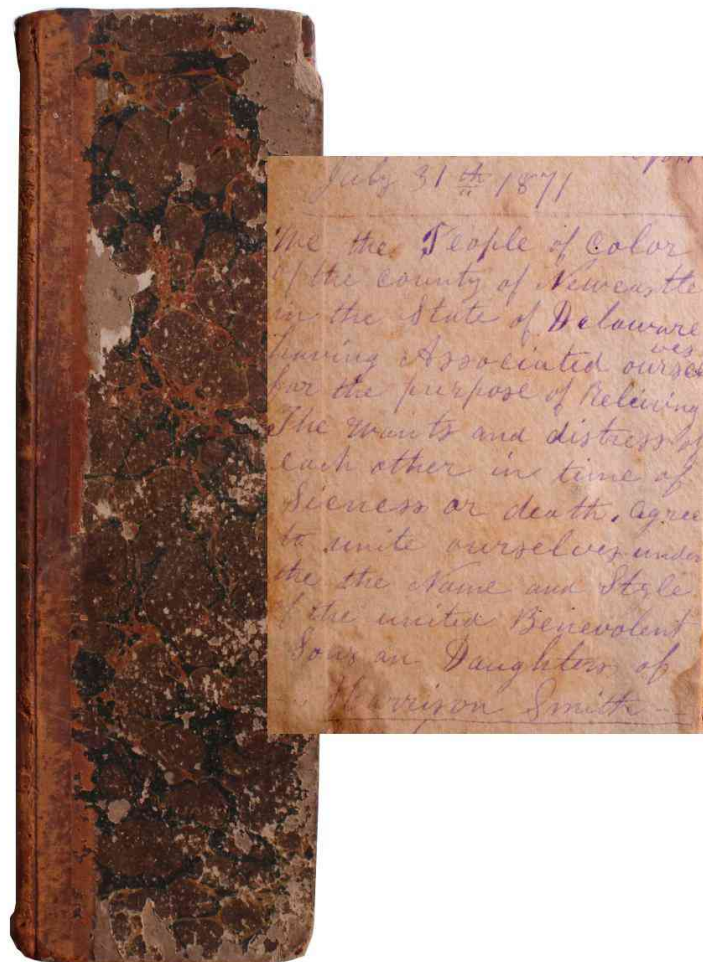 July 31th 1871
We the People of Color
of the county of Newcastle
in the State of Delaware
having Associated ourselves
for the purpose of Releiving
The wants and distress of
each other in time of
Sicness or death, agree
to unite ourselves under
the the Name and Style
of the united Benevolent
Sons an Daughters of
Harrison Smith